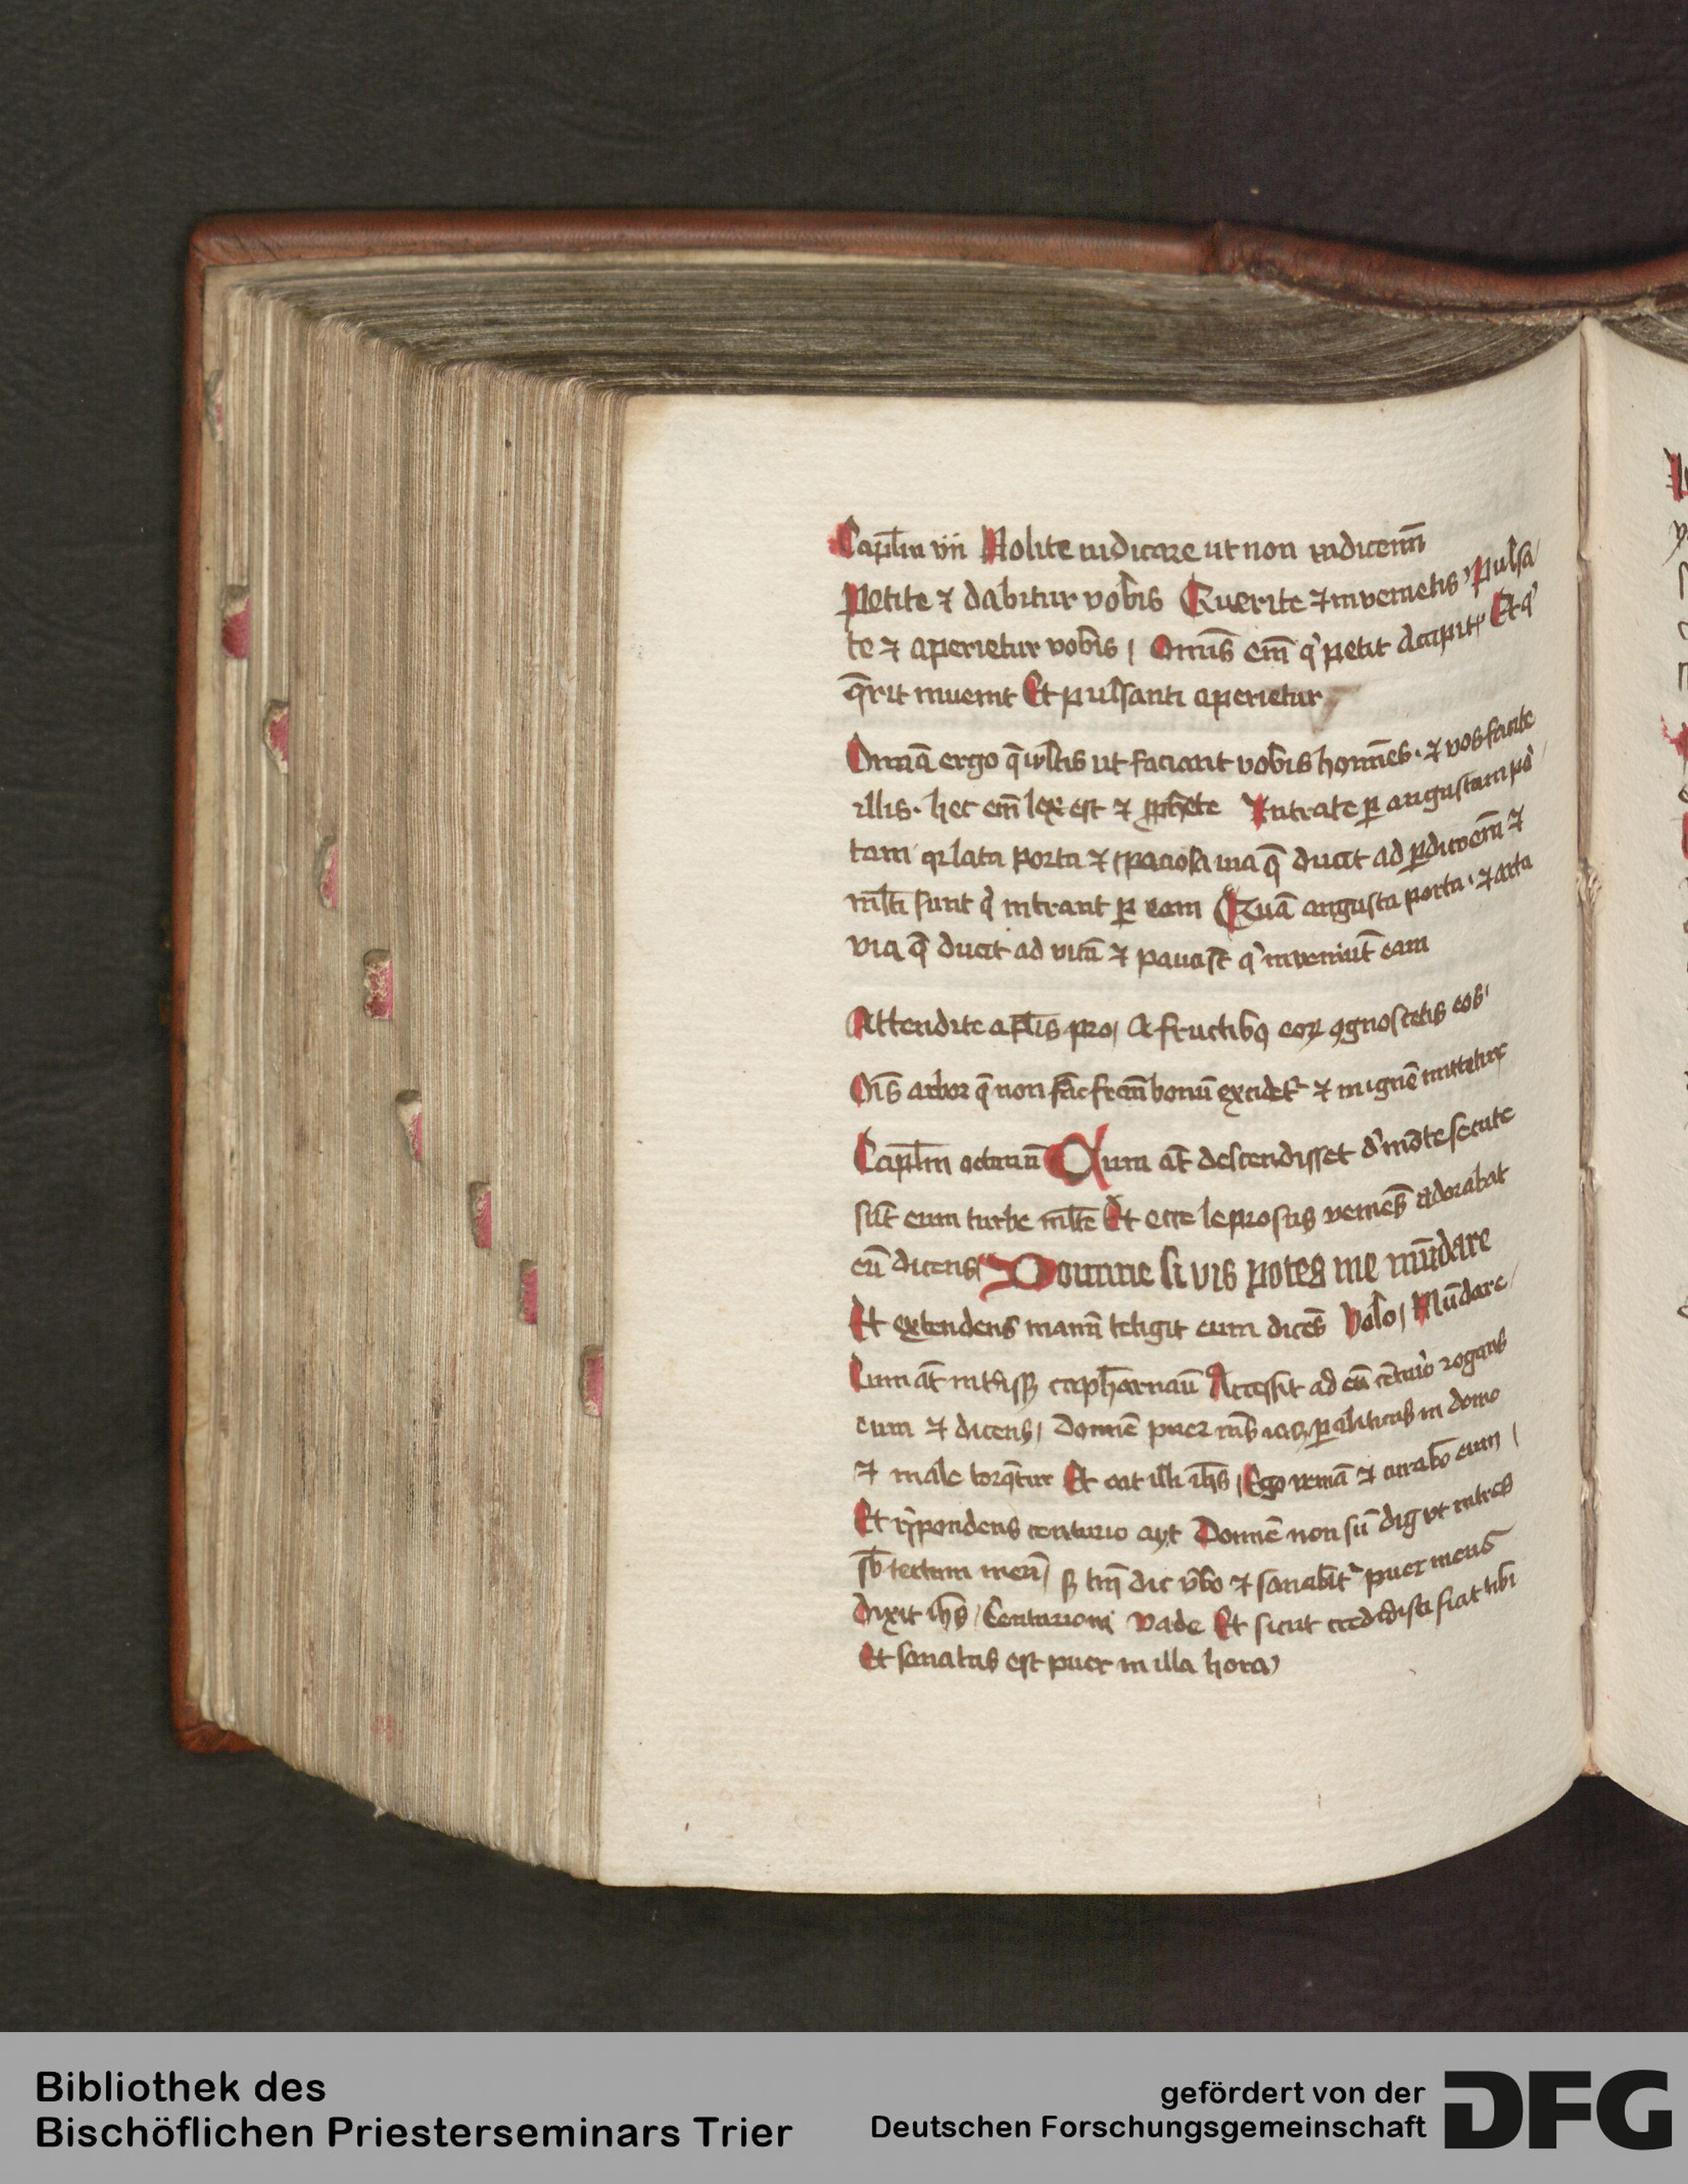 Capl̅m vii Nolite iudicare ut non iudicemı̅
Petite ⁊ dabitur vob̅is Querite ⁊ invenietis Pulsa
te ⁊ aperietur vob̅is / Omīs em̅ q petit accipit Et q
q̅rit invenit Et pulsanti aperietur
Omīa ergo q̅ vltis ut faciant vob̅is homīes · ⁊ vos facite
illis · hec em̅ lex est ⁊ ꝓph̅ete Intrate ꝑ angustam por
tam qr lata porta ⁊ spaciosa via q̅ ducit ad ꝑdicoem̅ ⁊
ml̅ti sunt q intrant ꝑ eam Quā angusta porta · ⁊ arta
via q̅ ducit ad vitā ⁊ pauci st̅ q inveniūt eam
Attendite a fl̅is pro / A fructibꝫ eoꝝ ꝯgnoscetis eos
Oīs arbor q̅ non fac̅ frcm̅ bonū excidet᷑ ⁊ in ignē mittetur
Capl̅m octavū Cum at̅ descendisset d mōte secute
sūt eum turbe ml̅te Et ecce leprosus veniēs adorabat
eū dicens Domine si vis potes me mūdare
Et extendens manū tetigit eum dicēs Volo / Mūdare /
Cum at̅ intrasꝫ capharnaū Accessit ad eū cēturio rogans
eum ⁊ dicens / Domīe puer ms̅ iacꝫ ꝑaliticus in domo
⁊ male torq̅tur Et ait illi ih̅s / Ego veniā ⁊ curabo eum /
Et rn̅pondens centurio ayt Domīe non sū dig ut intres
sb̅ tectum meū / sꝫ tm̅ dic v̅bo ⁊ sanabit᷑ puer meus
Dixit ih̅s / Centurioni Vade Et sicut credidisti fiat tibi
Et sanatus est puer in illa hora
Bibliothek des
Bischöflichen Priesterseminars Trier
gefördert von der
Deutschen Forschungsgemeinschaft
DFG